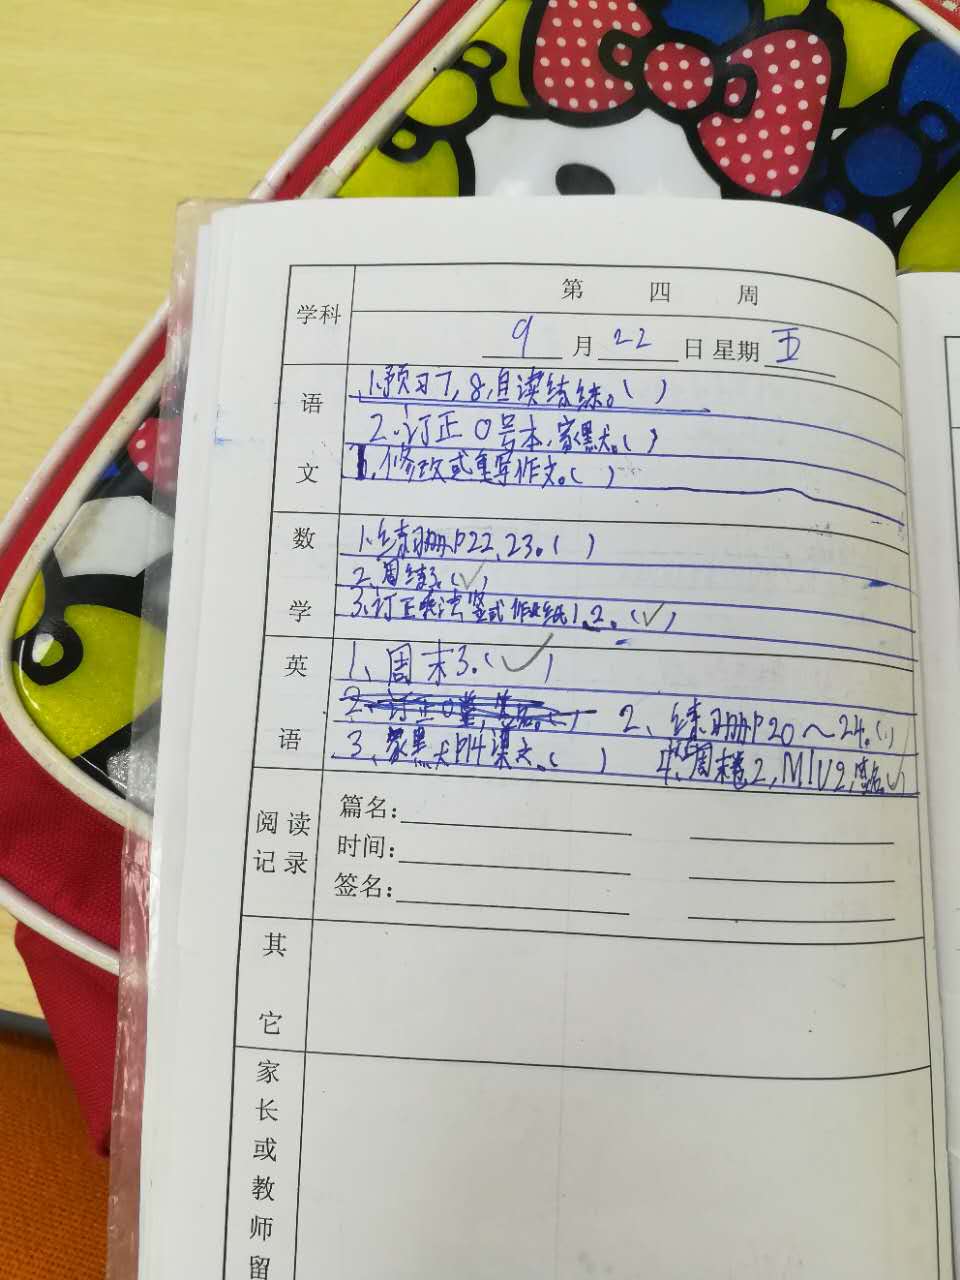 学科
第 四 周
9 月 22 日 星期 五
语文
1.预习7,8,自读练练。( )
2.订正0号本,家黑大。( )
1.修改或重写作文。( )
数学
1.练习册P22、23。( )
2、周练3.(✓)
3.订正乘法竖式作业纸1、2。(✓)
英语
1、周末3.(✓)
2、练习册P20~24.( )
3、家黑大P14课文。( )
4、周末卷2,M1V2,签名✓
阅读记录
篇名:
时间:
签名:
其它
家长或教师留